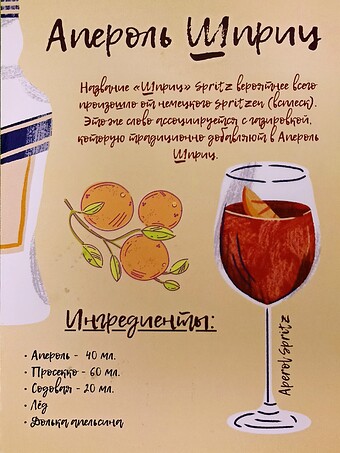 Апероль Шприц
Название «Шприц» Spritz вероятнее всего
произошло от немецкого Spritzen (всплеск).
Это же слово ассоциируется с газировкой,
которую традиционно добавляют в Апероль
Шприц.
Ингредиенты:
• Апероль - 40 мл.
• Просекко - 60 мл.
• Содовая - 20 мл.
• Лёд
• Долька апельсина
Aperol Spritz